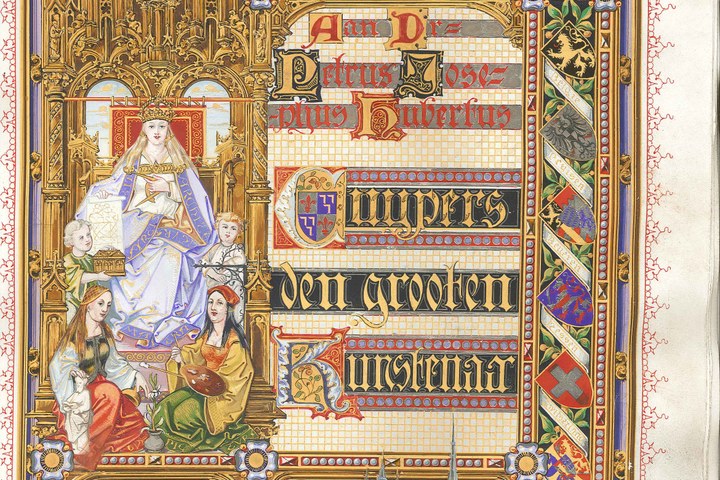 Aan Dr=
Petrus Jose=
=phus Hubertus
Cuijpers
den grooten
Kunstenaar